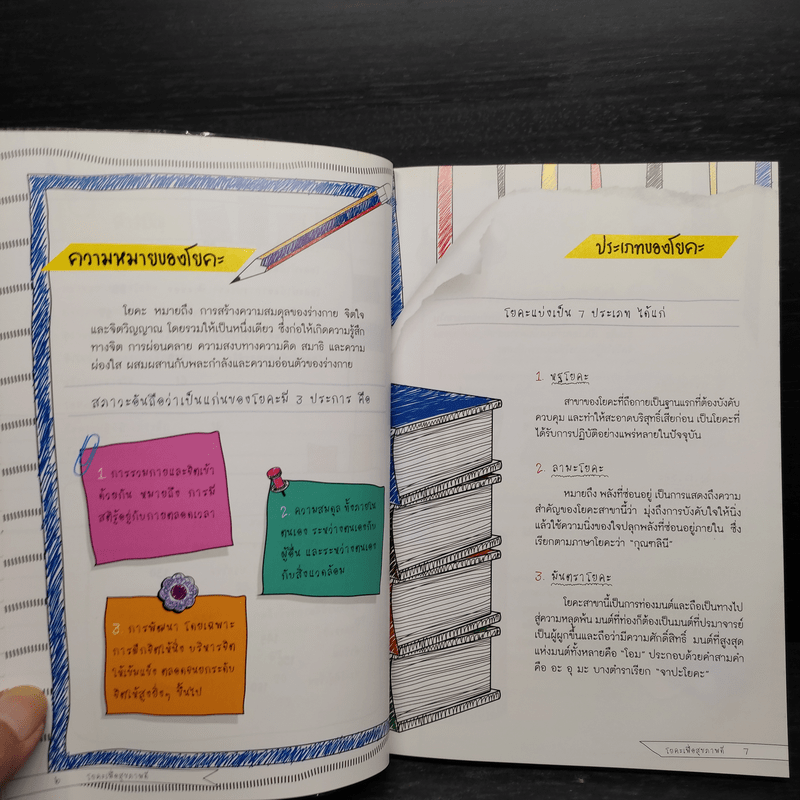 ความหมายของโยคะ
โยคะ หมายถึง การสร้างความสมดุลของร่างกาย จิตใจ
และจิตวิญญาณ โดยรวมให้เป็นหนึ่งเดียว ซึ่งก่อให้เกิดความรู้สึก
ทางจิต การผ่อนคลาย ความสงบทางความคิด สมาธิ และความ
ผ่องใส ผสมผสานกับพละกำลังและความอ่อนตัวของร่างกาย
สภาวะอันถือว่าเป็นแก่นของโยคะมี 3 ประการ คือ
1 การรวมกายและจิตเข้า
ด้วยกัน หมายถึง การมี
สติรู้อยู่กับกายตลอดเวลา
2. ความสมดุล ทั้งภายใน
ตนเอง ระหว่างตนเองกับ
ผู้อื่น และระหว่างตนเอง
กับสิ่งแวดล้อม
3 การพัฒนา โดยเฉพาะ
การฝึกจิตให้นิ่ง บริหารจิต
ให้เข้มแข็ง ตลอดจนยกระดับ
จิตให้สูงยิ่งๆ ขึ้นไป
6 โยคะเพื่อสุขภาพดี
ประเภทของโยคะ
โยคะแบ่งเป็น 7 ประเภท ได้แก่
1. หฐโยคะ
สาขาของโยคะที่ถือกายเป็นฐานแรกที่ต้องบังคับ
ควบคุม และทำให้สะอาดบริสุทธิ์เสียก่อน เป็นโยคะที่
ได้รับการปฏิบัติอย่างแพร่หลายในปัจจุบัน
2. ลามะโยคะ
หมายถึง พลังที่ซ่อนอยู่ เป็นการแสดงถึงความ
สำคัญของโยคะสาขานี้ว่า มุ่งถึงการบังคับใจให้นิ่ง
แล้วใช้ความนิ่งของใจปลุกพลังที่ซ่อนอยู่ภายใน ซึ่ง
เรียกตามภาษาโยคะว่า "กุณฑลินี"
3. มันตราโยคะ
โยคะสาขานี้เป็นการท่องมนต์และถือเป็นทางไป
สู่ความหลุดพ้น มนต์ที่ท่องก็ต้องเป็นมนต์ที่ปรมาจารย์
เป็นผู้ผูกขึ้นและถือว่ามีความศักดิ์สิทธิ์ มนต์ที่สูงสุด
แห่งมนต์ทั้งหลายคือ "โอม" ประกอบด้วยคำสามคำ
คือ อะ อุ มะ บางตำราเรียก "จาปะโยคะ"
โยคะเพื่อสุขภาพดี 7